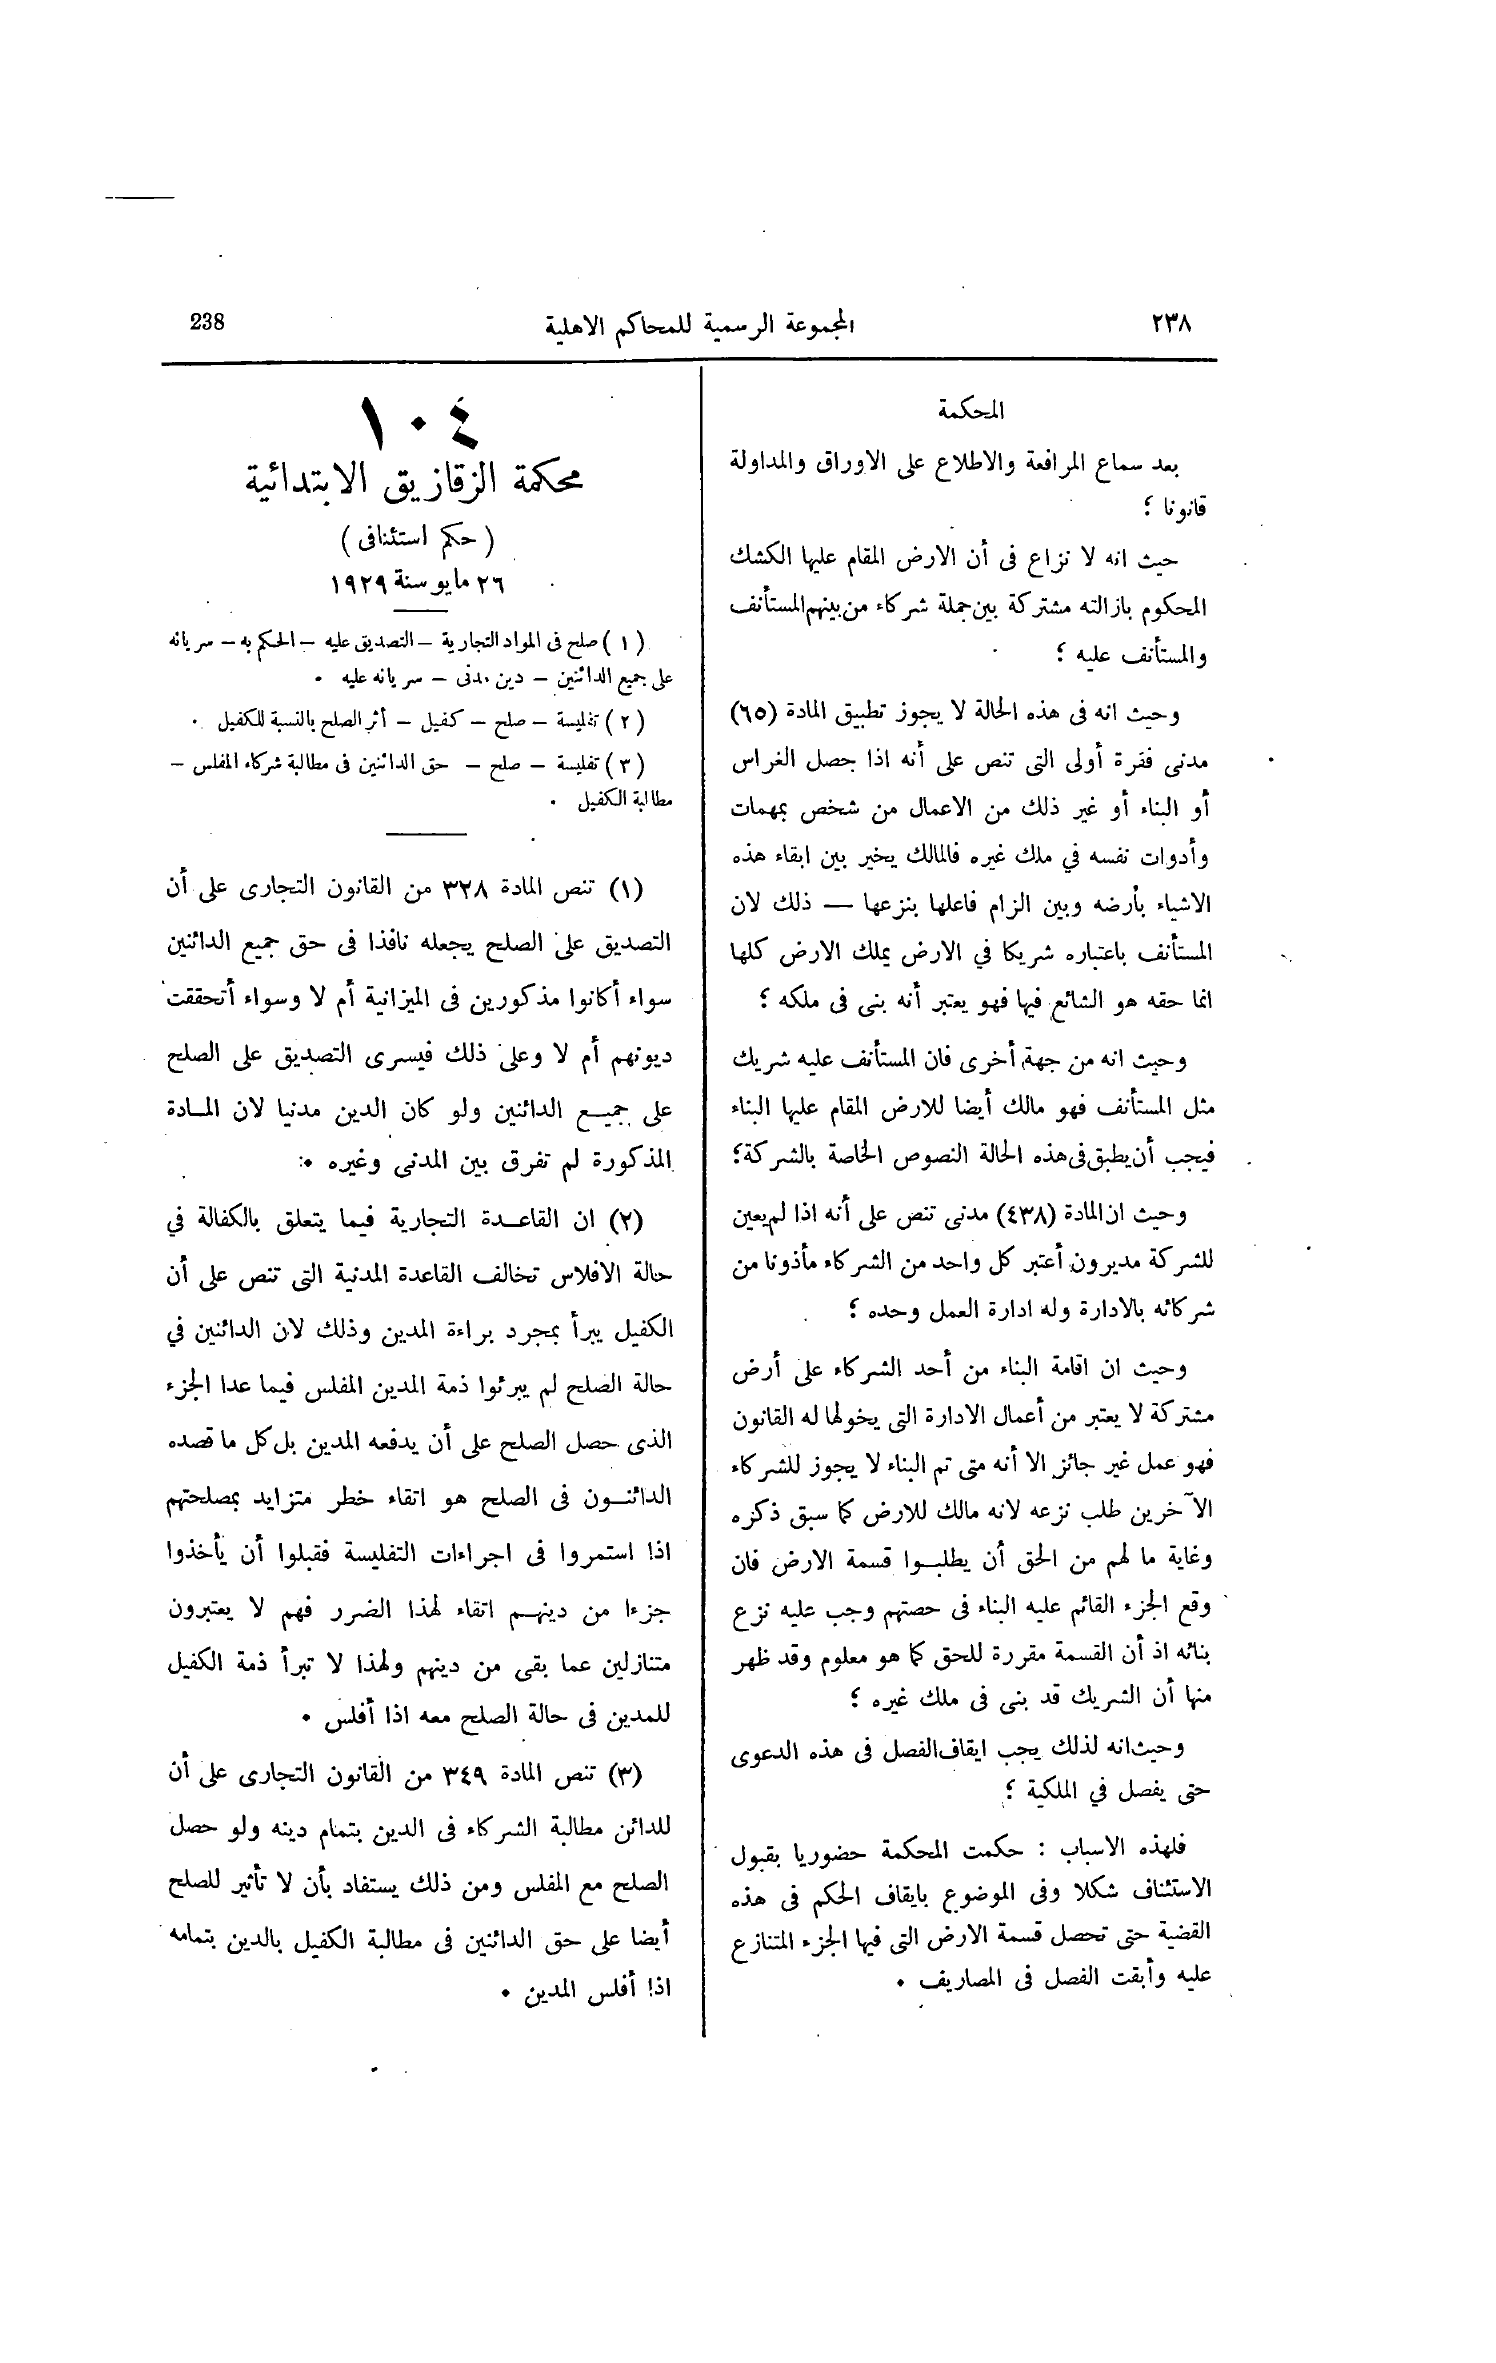 ٢٣٨
المجموعة الرسمية للمحاكم الاهلية
238
المحكمة
بعد سماع المرافعة والاطلاع على الاوراق والمداولة
قانونا ؛
حيث انه لا نزاع فى أن الارض المقام عليها الكشك
المحكوم بازالته مشتركة بين جملة شركاء من بينهم المستأنف
والمستأنف عليه ؛
وحيث انه فى هذه الحالة لا يجوز تطبيق المادة (٦٥)
مدنى فقرة أولى التى تنص على أنه اذا حصل الغراس
أو البناء أو غير ذلك من الاعمال من شخص بمهمات
وأدوات نفسه في ملك غيره فالمالك يخير بين ابقاء هذه
الاشياء بأرضه وبين الزام فاعلها بنزعها — ذلك لان
المستأنف باعتباره شريكا في الارض يملك الارض كلها
انما حقه هو الشائع فيها فهو يعتبر أنه بنى فى ملكه ؛
وحيث انه من جهة أخرى فان المستأنف عليه شريك
مثل المستأنف فهو مالك أيضا للارض المقام عليها البناء
فيجب أن يطبق فى هذه الحالة النصوص الخاصة بالشركة؛
وحيث ان المادة (٤٣٨) مدنى تنص على أنه اذا لم يعين
للشركة مديرون أعتبر كل واحد من الشركاء مأذونا من
شركائه بالادارة وله ادارة العمل وحده ؛
وحيث ان اقامة البناء من أحد الشركاء على أرض
مشتركة لا يعتبر من أعمال الادارة التى يخولها له القانون
فهو عمل غير جائز الا أنه متى تم البناء لا يجوز للشركاء
الآخرين طلب نزعه لانه مالك للارض كما سبق ذكره
وغاية ما لهم من الحق أن يطلبوا قسمة الارض فان
وقع الجزء القائم عليه البناء فى حصتهم وجب عليه نزع
بنائه اذ أن القسمة مقررة للحق كما هو معلوم وقد ظهر
منها أن الشريك قد بنى فى ملك غيره ؛
وحيث انه لذلك يجب ايقاف الفصل فى هذه الدعوى
حتى يفصل في الملكية ؛
فلهذه الاسباب : حكمت المحكمة حضوريا بقبول
الاستئناف شكلا وفى الموضوع بايقاف الحكم فى هذه
القضية حتى تحصل قسمة الارض التى فيها الجزء المتنازع
عليه وأبقت الفصل فى المصاريف .
١٠٤
محكمة الزقازيق الابتدائية
( حكم استئنافى )
٢٦ مايو سنة ١٩٢٩
( ١ ) صلح فى المواد التجارية – التصديق عليه – الحكم به – سريانه
على جميع الدائنين – دين مدنى – سريانه عليه .
( ٢ ) تفليسة – صلح – كفيل – أثر الصلح بالنسبة للكفيل .
( ٣ ) تفليسة – صلح – حق الدائنين فى مطالبة شركاء المفلس –
مطالبة الكفيل .
(١) تنص المادة ٣٢٨ من القانون التجارى على أن
التصديق على الصلح يجعله نافذا فى حق جميع الدائنين
سواء أكانوا مذكورين فى الميزانية أم لا وسواء أتحققت
ديونهم أم لا وعلى ذلك فيسرى التصديق على الصلح
على جميع الدائنين ولو كان الدين مدنيا لان المادة
المذكورة لم تفرق بين المدنى وغيره .
(٢) ان القاعدة التجارية فيما يتعلق بالكفالة في
حالة الافلاس تخالف القاعدة المدنية التى تنص على أن
الكفيل يبرأ بمجرد براءة المدين وذلك لان الدائنين في
حالة الصلح لم يبرئوا ذمة المدين المفلس فيما عدا الجزء
الذى حصل الصلح على أن يدفعه المدين بل كل ما قصده
الدائنون فى الصلح هو اتقاء خطر متزايد بمصلحتهم
اذا استمروا فى اجراءات التفليسة فقبلوا أن يأخذوا
جزءا من دينهم اتقاء لهذا الضرر فهم لا يعتبرون
متنازلين عما بقى من دينهم ولهذا لا تبرأ ذمة الكفيل
للمدين فى حالة الصلح معه اذا أفلس .
(٣) تنص المادة ٣٤٩ من القانون التجارى على أن
للدائن مطالبة الشركاء فى الدين بتمام دينه ولو حصل
الصلح مع المفلس ومن ذلك يستفاد بأن لا تأثير للصلح
أيضا على حق الدائنين فى مطالبة الكفيل بالدين بتمامه
اذا أفلس المدين .